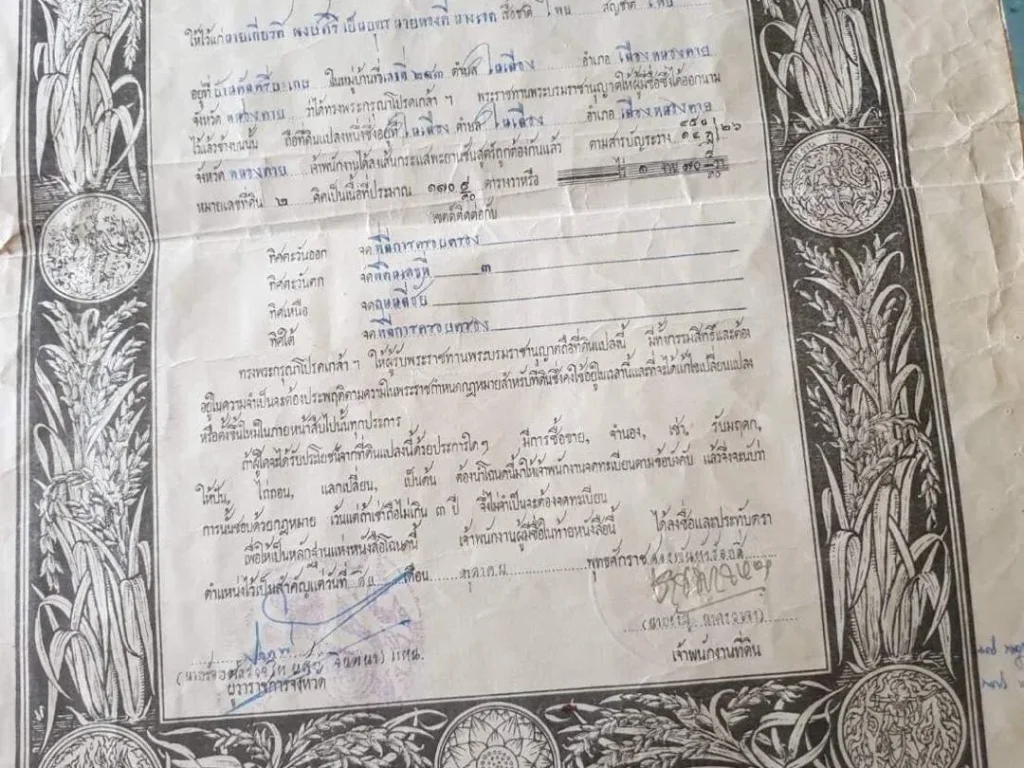 ให้ไว้แก่นายเกียรติ พงษ์ศิริ เป็นบุตร นายทองดี เชื้อชาติ ไทย สัญชาติ ไทย
อยู่ที่ ในหมู่บ้านที่เลขที่ ๒๘๓ ตำบล ในเมือง อำเภอ เมืองหนองคาย
จังหวัด หนองคาย ว่าได้ทรงพระกรุณาโปรดเกล้า ฯ พระราชทานพระบรมราชานุญาตให้ผู้มีชื่อซึ่งได้ออกนาม
ไว้แล้วข้างบนนั้น ถือที่ดินแปลงหนึ่งซึ่งอยู่ที่ ในเมือง ตำบล ในเมือง อำเภอ เมืองหนองคาย
จังหวัด หนองคาย เจ้าพนักงานได้ลงเส้นกระแสพะยานชั้นสูตร์ถูกต้องแล้ว ตามสารบัญระวาง
หมายเลขที่ดิน ๒ คิดเป็นเนื้อที่ประมาณ ๑๗๐ ตารางวาหรือ ไร่ ๑ งาน ๗๐ วา
เขตต์ติดต่อกับ
ทิศตะวันออก จด ที่มีการครอบครอง
ทิศตะวันตก จด ที่ดินเลขที่ ๓
ทิศเหนือ จด ถนนมีชัย
ทิศใต้ จด ที่มีการครอบครอง
ทรงพระกรุณาโปรดเกล้า ฯ ให้ผู้รับพระราชทานพระบรมราชานุญาตถือที่ดินแปลงนี้ มีทั้งกรรมสิทธิ์และต้อง
อยู่ในความจำเป็นจะต้องประพฤติตามความในพระราชกำหนดกฎหมายสำหรับที่ดินซึ่งคงใช้อยู่ในเวลานี้และที่จะได้แก้ไขเปลี่ยนแปลง
หรือตั้งขึ้นใหม่ในภายหน้าสืบไปนั้นทุกประการ
ถ้าผู้ใดจะได้รับประโยชน์จากที่ดินแปลงนี้ด้วยประการใดๆ มีการซื้อขาย, จำนอง, เช่า, รับมฤดก,
ให้ปัน, ไถ่ถอน, แลกเปลี่ยน, เป็นต้น ต้องนำโฉนดนี้มาให้เจ้าพนักงานจดทะเบียนตามข้อบังคับ แล้วจึ่งจะนับว่า
การนั้นชอบด้วยกฎหมาย เว้นแต่ถ้าเช่าถือไม่เกิน ๓ ปี จึ่งไม่จำเป็นจะต้องจดทะเบียน
เพื่อให้เป็นหลักฐานแห่งหนังสือโฉนดนี้ เจ้าพนักงานผู้มีชื่อในท้ายหนังสือนี้ ได้ลงชื่อและประทับตรา
ตำแหน่งไว้เป็นสำคัญแต่วันที่ เดือน ตุลาคม พุทธศักราช
แทน.
ผู้ว่าราชการจังหวัด
เจ้าพนักงานที่ดิน